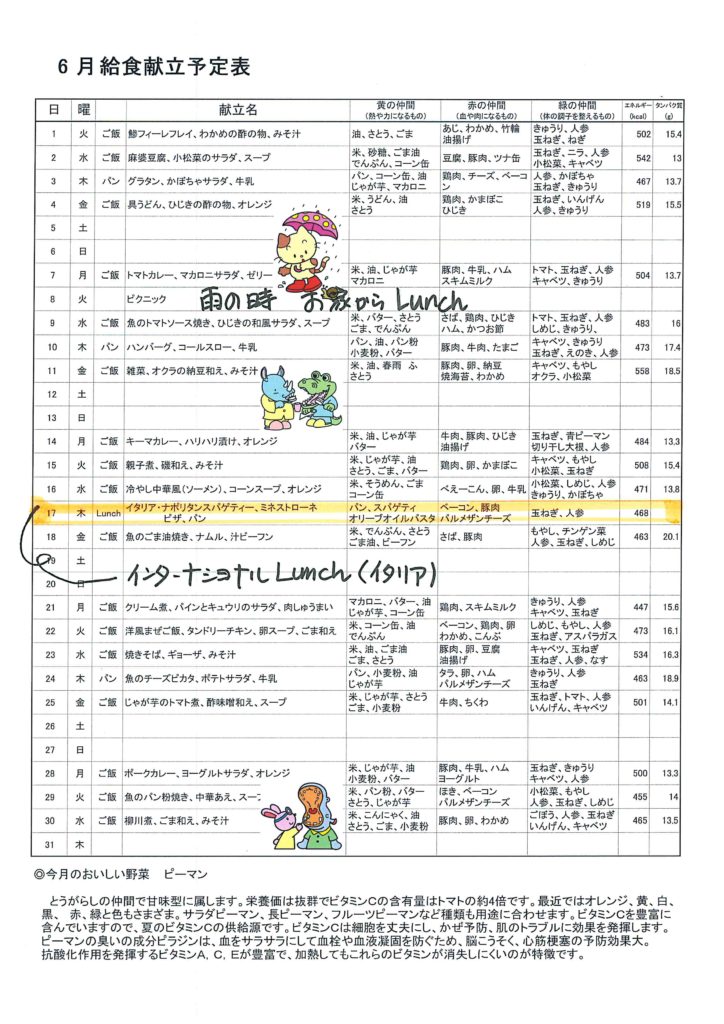 6月給食献立予定表
日 曜 献立名 黄の仲間 (熱や力になるもの) 赤の仲間 (血や肉になるもの) 緑の仲間 (体の調子を整えるもの) エネルギー (kcal) タンパク質 (g)
1 火 ご飯 鯵フィーレフレイ、わかめの酢の物、みそ汁 油、さとう、ごま あじ、わかめ、竹輪 油揚げ きゅうり、人参 玉ねぎ、ねぎ 502 15.4
2 水 ご飯 麻婆豆腐、小松菜のサラダ、スープ 米、砂糖、ごま油 でんぷん、コーン缶 豆腐、豚肉、ツナ缶 玉ねぎ、ニラ、人参 小松菜、キャベツ 542 13
3 木 パン グラタン、かぼちゃサラダ、牛乳 パン、コーン缶、油 じゃが芋、マカロニ 鶏肉、チーズ、ベーコン 人参、かぼちゃ 玉ねぎ、きゅうり 467 13.7
4 金 ご飯 具うどん、ひじきの酢の物、オレンジ 米、うどん、油 さとう 鶏肉、かまぼこ ひじき 玉ねぎ、いんげん 人参、きゅうり 519 15.5
5 土
6 日
7 月 ご飯 トマトカレー、マカロニサラダ、ゼリー 米、油、じゃが芋 マカロニ 豚肉、牛乳、ハム スキムミルク トマト、玉ねぎ、人参 キャベツ、きゅうり 504 13.7
8 火 ピクニック 雨の時 お家からLunch
9 水 ご飯 魚のトマトソース焼き、ひじきの和風サラダ、スープ 米、バター、さとう ごま、でんぷん さば、鶏肉、ひじき ハム、かつお節 トマト、玉ねぎ、人参 しめじ、きゅうり、 483 16
10 木 パン ハンバーグ、コールスロー、牛乳 パン、油、パン粉 小麦粉、バター 豚肉、牛肉、たまご キャベツ、きゅうり 玉ねぎ、えのき、人参 473 17.4
11 金 ご飯 雑菜、オクラの納豆和え、みそ汁 米、油、春雨 ふ さとう 豚肉、卵、納豆 焼海苔、わかめ キャベツ、もやし オクラ、小松菜 558 18.5
12 土
13 日
14 月 ご飯 キーマカレー、ハリハリ漬け、オレンジ 米、油、じゃが芋 バター 牛肉、豚肉、ひじき 油揚げ 玉ねぎ、青ピーマン 切り干し大根、人参 484 13.3
15 火 ご飯 親子煮、磯和え、みそ汁 米、油、じゃが芋 さとう、ごま、バター 鶏肉、卵、かまぼこ キャベツ、もやし 小松菜、玉ねぎ 508 15.4
16 水 ご飯 冷やし中華風(ソーメン)、コーンスープ、オレンジ 米、そうめん、ごま コーン缶 べえーこん、卵、牛乳 小松菜、人参、しめじ きゅうり、かぼちゃ 471 13.8
17 木 Lunch イタリア・ナポリタンスパゲティー、ミネストローネ ピザ、パン パン、スパゲティ オリーブオイルパスタ ベーコン、豚肉 パルメザンチーズ 玉ねぎ、人参 468
18 金 ご飯 魚のごま油焼き、ナムル、汁ビーフン 米、でんぷん、さとう ごま油、ビーフン さば、豚肉 もやし、チンゲン菜 人参、玉ねぎ、しめじ 463 20.1
19 土
インターナショナルLunch(イタリア)
20 日
21 月 ご飯 クリーム煮、パインとキュウリのサラダ、肉しゅうまい マカロニ、バター、油 じゃが芋、コーン缶 鶏肉、スキムミルク きゅうり、人参 キャベツ、玉ねぎ 447 15.6
22 火 ご飯 洋風まぜご飯、タンドリーチキン、卵スープ、ごま和え 米、コーン缶、油 でんぷん ベーコン、鶏肉、卵 わかめ、こんぶ しめじ、もやし、人参 玉ねぎ、アスパラガス 473 16.1
23 水 ご飯 焼きそば、ギョーザ、みそ汁 米、油、ごま油 ごま、さとう 豚肉、卵、豆腐 油揚げ キャベツ、もやし 玉ねぎ、人参、なす 534 16.3
24 木 パン 魚のチーズピカタ、ポテトサラダ、牛乳 パン、小麦粉、油 じゃが芋 タラ、卵、ハム パルメザンチーズ きゅうり、人参 玉ねぎ 463 18.9
25 金 ご飯 じゃが芋のトマト煮、酢味噌和え、スープ 米、じゃが芋、さとう ごま、小麦粉 牛肉、ちくわ 玉ねぎ、トマト、人参 いんげん、キャベツ 501 14.1
26 土
27 日
28 月 ご飯 ポークカレー、ヨーグルトサラダ、オレンジ 米、じゃが芋、油 小麦粉、バター 豚肉、牛乳、ハム ヨーグルト 玉ねぎ、きゅうり キャベツ、人参 500 13.3
29 火 ご飯 魚のパン粉焼き、中華あえ、スープ 米、パン粉、バター さとう、じゃが芋 ほき、ベーコン パルメザンチーズ 小松菜、もやし 人参、玉ねぎ、しめじ 455 14
30 水 ご飯 柳川煮、ごま和え、みそ汁 米、こんにゃく、油 さとう、ごま、小麦粉 豚肉、卵、わかめ ごぼう、人参、玉ねぎ いんげん、キャベツ 465 13.5
31 木
◎今月のおいしい野菜 ピーマン
とうがらしの仲間で甘味型に属します。栄養価は抜群でビタミンCの含有量はトマトの約4倍です。最近ではオレンジ、黄、白、
黒、 赤、緑と色もさまざま。サラダピーマン、長ピーマン、フルーツピーマンなど種類も用途に合わせます。ビタミンCを豊富に
含んでいますので、夏のビタミンCの供給源です。ビタミンCは細胞を丈夫にし、かぜ予防、肌のトラブルに効果を発揮します。
ピーマンの臭いの成分ピラジンは、血をサラサラにして血栓や血液凝固を防ぐため、脳こうそく、心筋梗塞の予防効果大。
抗酸化作用を発揮するビタミンA, C, Eが豊富で、加熱してもこれらのビタミンが消失しにくいのが特徴です。